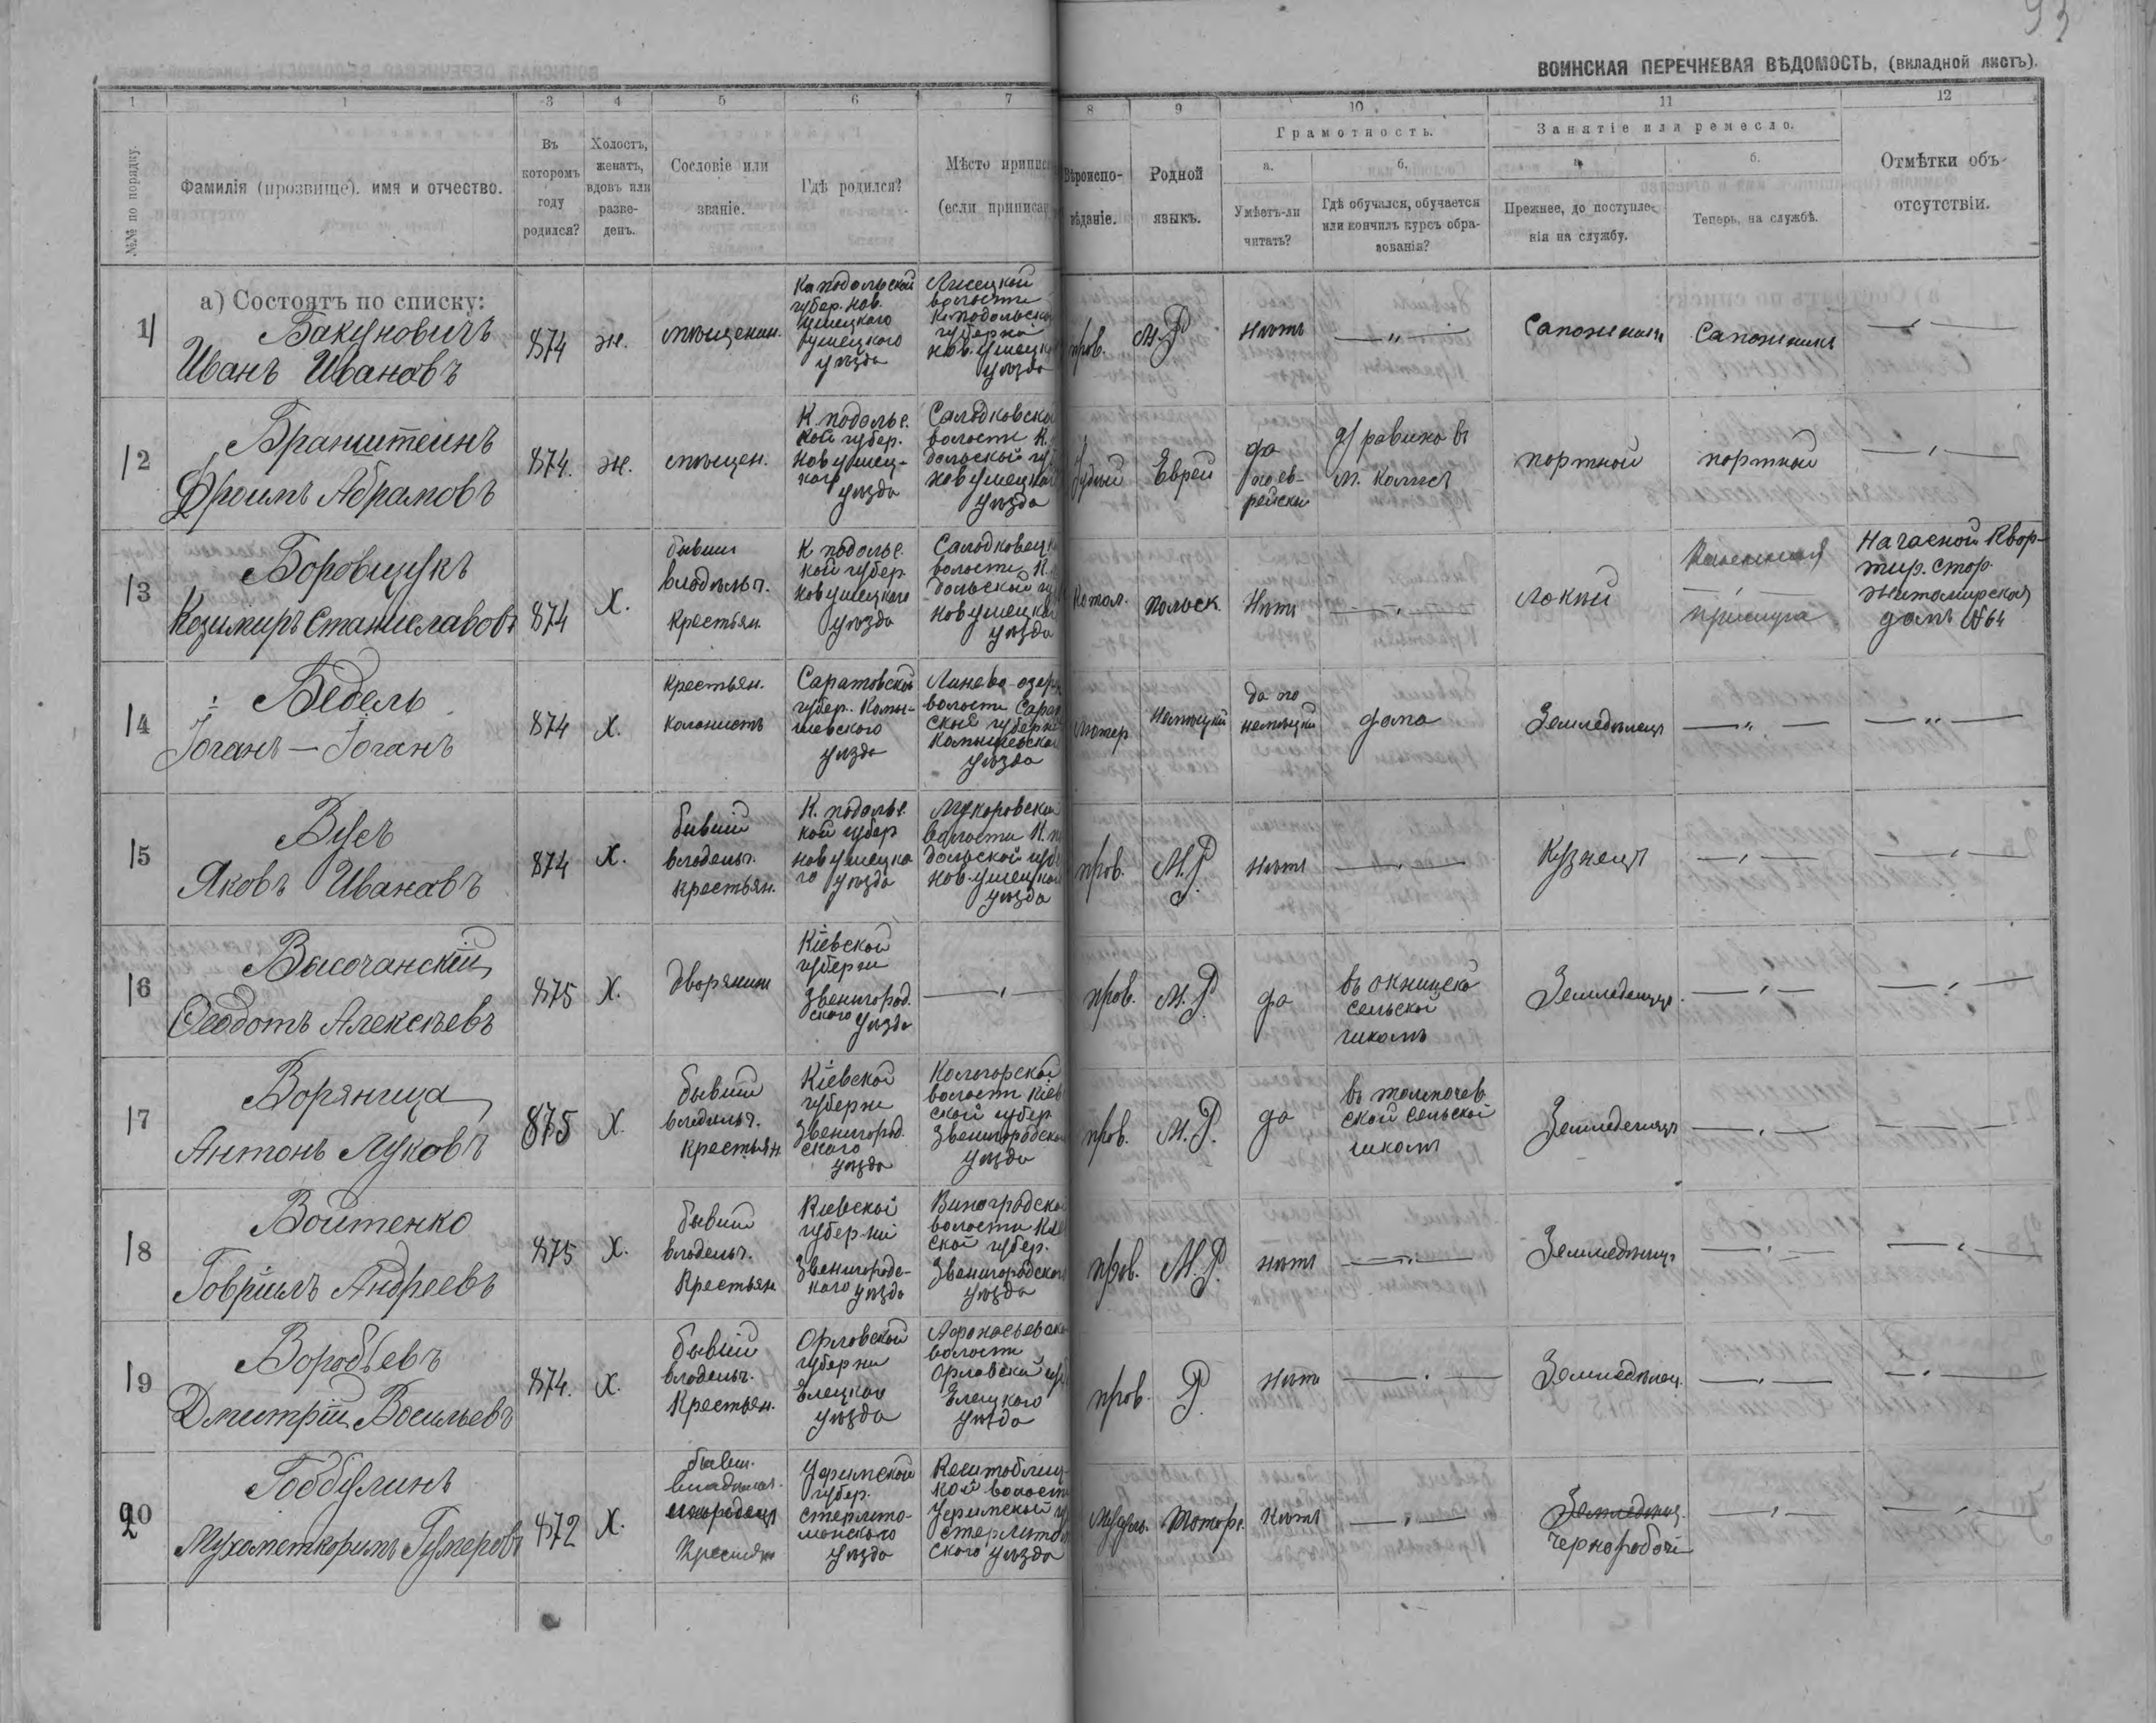 93
ВОИНСКАЯ ПЕРЕЧНЕВАЯ ВѢДОМОСТЬ, (вкладной листъ).
1 1 3 4 5 6 7 8 9 10 11 12
№№ по порядку.
Фамилія (прозвище), имя и отчество.
Въ которомъ году родился?
Холостъ, женатъ, вдовъ или разведенъ.
Сословіе или званіе.
Гдѣ родился?
Мѣсто приписк
(если приписан
Вѣроиспо-
вѣданіе.
Родной языкъ.
Грамотность.
а.
Умѣетъ-ли читать?
б.
Гдѣ обучался, обучается или кончилъ курсъ обра-
зованія?
Занятіе или ремесло.
а.
Прежнее, до поступле-
нія на службу.
б.
Теперь, на службѣ.
Отмѣтки объ отсутствіи.
а) Состоятъ по списку:
11
Бакуновичъ
Иванъ Ивановъ
874
ж.
мѣщенин.
К подольской
губер. нов.
ушецкого
уѣзда
волости
К. подольско
губерніи
уѣзда
пров.
М. Р.
Нѣтъ
Сапожникъ
Сапожникъ
12
Бранштеинъ
Фроимъ Абрамовъ
874.
ж.
мѣщен.
К. подольс.
кой губер.
Нов ушец-
кого
уѣзда
волости К.
дольской гу
нов ушецкой
уѣзда
Еврей
да
по ев-
рейски
портной
портной
13
Боровщукъ
Козимиръ Станиславовъ
874
Х.
бывши
владѣльч.
Крестьян.
К подольс.
кой губер
нов ушецкого
уѣзда
волости К.
дольской гу
нов ушецкой
уѣзда
Катол.
польск.
Нѣтъ
локий
прислуга
На часной Квор-
тир. стор.
житомирская
домъ №64
14
Бедель
Іоганъ — Іоганъ
874
Х.
Крестьян.
колонистъ
Саратовской
губер. Камы-
шевского
уѣзда
Линево-озер
волости Сара
ской губерні
Камышевской
уѣзда
лютер
немѣцкій
да по
немѣцки
дома
Земледѣлецъ
15
Вусъ
Яковъ Ивановъ
874
Х.
бывшій
владельч.
Крестьян.
К. подольс.
кой губер
нов ушецко
го уѣзда
волости К. п
дольской губ
нов-ушецкой
уѣзда
пров.
М. Р.
нѣтъ
Кузнецъ
16
Высочанскій
Ѳеодотъ Алексѣевъ
875
Х.
дворянин
Кіевской
губерни
Звенигород.
ского уѣзда
пров.
М. Р.
да
сельской
школѣ
Земледелецъ.
17
Воряница
Антонъ Луковъ
875
Х.
бывший
владельч.
Крестьян
Кіевской
губерни
Звенигород.
ского
уѣзда
волости Кіев
ской губер
Звенигородской
уѣзда
пров.
М. Р.
да
ской сельской
школѣ
Земледелецъ
18
Войтенко
Говріилъ Андреевъ
875
Х.
бывший
владельч.
Крестьян
Киевской
губерніи
Звенигородс-
кого уѣзда
Виноградской
волости Кіе
ской губер.
Звенигородского
уѣзда
пров.
М. Р.
нѣтъ
Земледѣлецъ
19
Воробьевъ
Дмитрій Восильевъ
874.
х.
бывший
владельч.
Крестьян.
Орловской
губерни
Елецкого
уѣзда
волости
Орловской губ
Елецкого
уѣзда
пров.
Р.
Нѣтъ
Земледѣлец.
20
Гоббулинъ
Мухометкоримъ Гумеровъ
872
Х.
бывш.
Крестьян
Уфимской
губер.
стерлито-
мокского
уѣзда
кой волости
Уфимской гу
стерлитом
ского уѣзда
Нѣтъ
Земледѣлец.
Чернорабочій